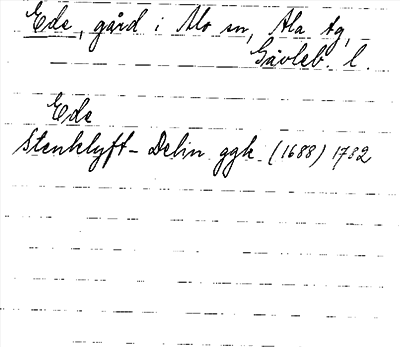 Ede, gård i Alo sn, Ala tg,
Gävleb. l.
Ede
Stenklyft - Delin ggk (1688) 1782